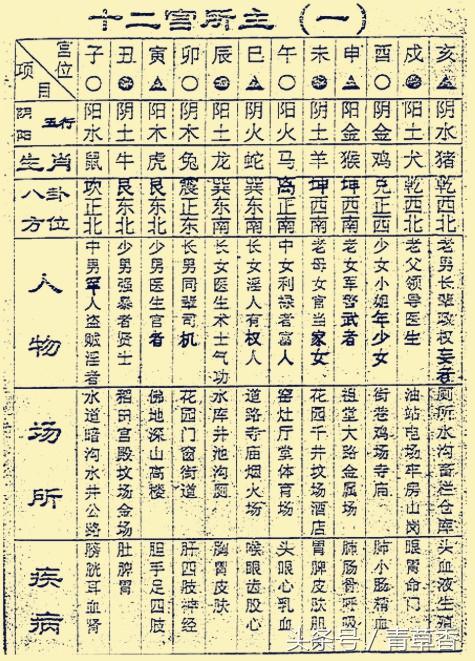 十二宫所主（一）
宫位 项目 子 丑 寅 卯 辰 巳 午 未 申 酉 戌 亥
阴阳五行 阳水 阴土 阳木 阴木 阳土 阴火 阳火 阴土 阳金 阴金 阳土 阴水
生肖 鼠 牛 虎 兔 龙 蛇 马 羊 猴 鸡 犬 猪
八卦方位 坎正北 艮东北 艮东北 震正东 巽东南 巽东南 离正南 坤西南 坤西南 兑正西 乾西北 乾西北
人物 中男军人盗贼淫者 少男强暴者贤士 少男医生官者 长男同辈司机 长女医生术士气功 长女淫人有权人 中女利禄者富人 老母女官当家女 老女军警武者 少女小姐年少女 老父领导医生 老男长辈政权者
场所 水道暗沟水井公路 稻田宫殿坟场金场 佛地深山高楼 花园门窗街道 水库井池沟厕 道路寺庙烟火场 窑灶厅堂体育场 花园千井坟场酒店 祖堂大路金属场 街巷鸡场寺庙 油站电场牢房山岗 厕所水沟畜栏仓库
疾病 膀胱耳血肾 肚脾胃 胆手足四肢 肝四肢神经 胸胃皮肤 喉眼齿股心 头眼心乳血 胃脾皮肤肌 肺肠骨呼吸 肺小肠精血 眼胃命门 头血液生殖
头条号/青草香